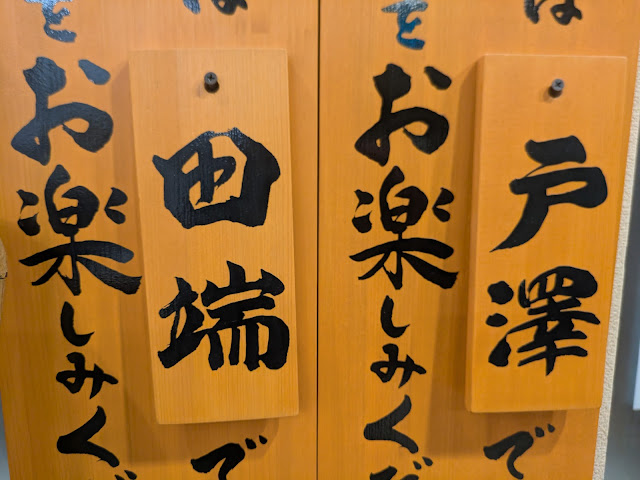 は
戸澤
で
をお楽しみくだ
は
田端
で
をお楽しみくだ